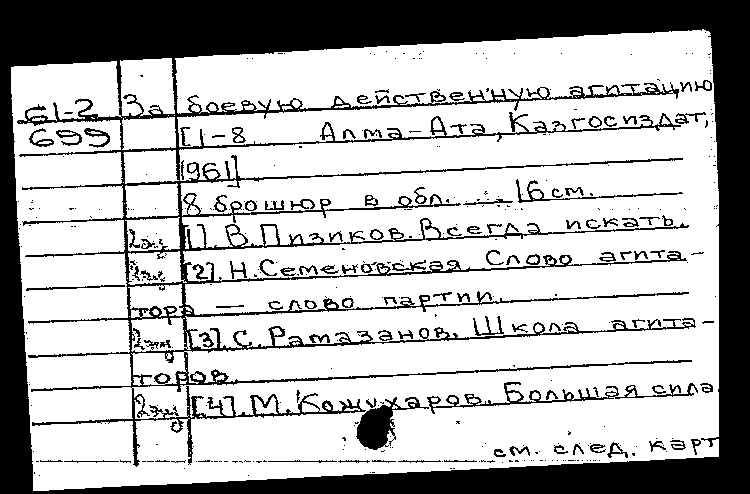 61-2 За боевую действенную агитацию
699 [1-8 Алма-Ата, Казгосиздат,
1961]
8 брошюр в обл. 16 см.
2 экз [1]. В. Пизиков. Всегда искать.
2 экз [2]. Н. Семеновская. Слово агита-
тора — слово партии.
2 экз [3]. С. Рамазанов. Школа агита-
торов.
2 экз [4]. М. Кожухаров. Большая сила
см. след. карт